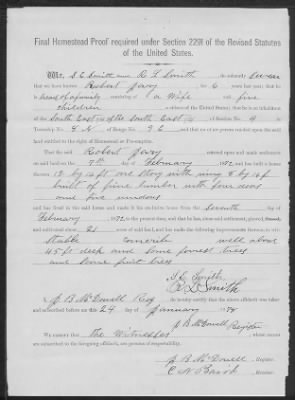 Final Homestead Proof required under Section 2291 of the Revised Statutes
of the United States.
We, S. E. Smith and R. L. Smith do solemnly swear
that we have known Robert Gary for 6 years last past; that he
is head of a family consisting of a Wife and five
children a citizen of the United States; that he is an inhabitant
of the South East 1/4 of the South East 1/4 of Section No. 4 in
Township No. 4 N of Range No. 9 E and that no other person resided upon the said
land entitled to the right of Homestead or Pre-emption.
That the said Robert Gary entered upon and made settlement
on said land on the 7th day of February 1872 and has built a house thereon
12 by 14 ft one story with wing 8 by 14 ft
built of pine lumber with four doors
and five windows
and has lived in the said house and made it his exclusive home from the seventh day of
February 1872 to the present time, and that he has, since said settlement, plowed, fenced,
and cultivated about 21 acres of said land, and has made the following improvements thereon, to wit:
Stable well above
45 ft deep and some forrest trees
and some fruit trees
S. E. Smith
R. L. Smith
I, J B McDowell Reg do hereby certify that the above affidavit was taken
and subscribed before me this 24 day of January 1878
J B McDowell Register
We certify that the Witnesses whose names are
subscribed to the foregoing affidavits, are persons of respectability.
J B McDowell, Register.
C N Baird, Receiver.